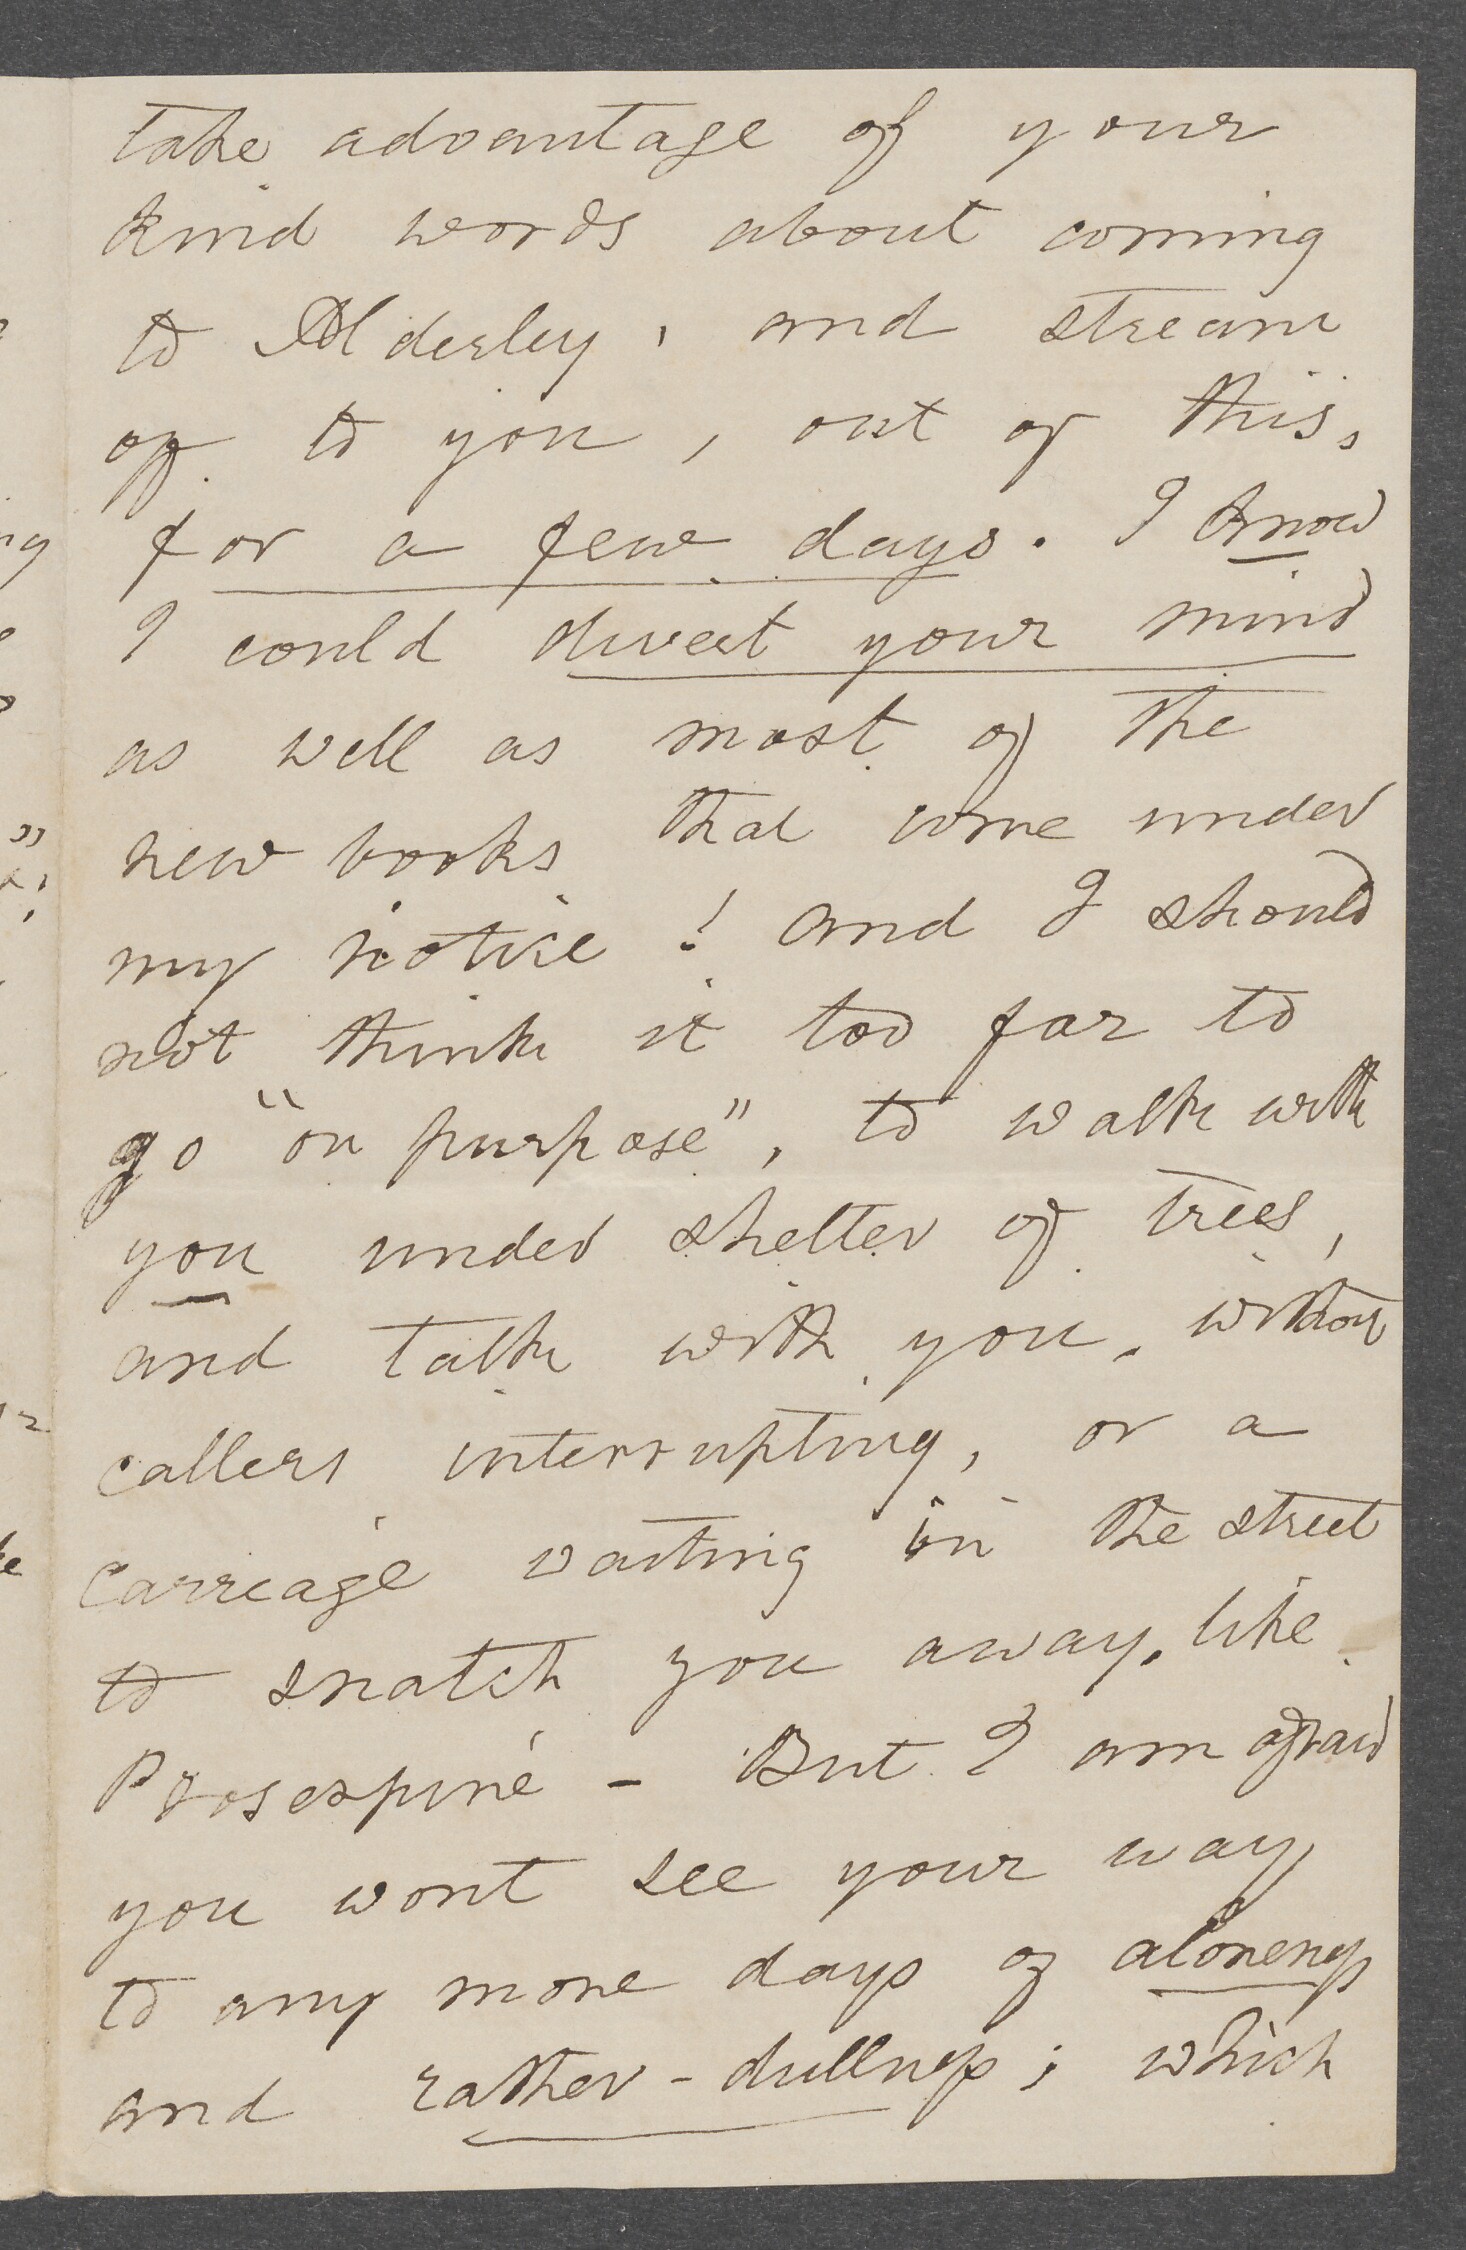 take advantage of your
kind words about coming
to Alderley, and stream
off to you, out of this,
for a few days. I know
I could divert your mind
as well as most of the
new books that come under
my notice! and I should
not think it too far to
go "on purpose", to walk with
you under shelter of trees,
and talk with you, without
callers interrupting, or a
carriage waiting in the street
to snatch you away, like
Proserpine - But I am afraid
you wont see your way
to any more days of aloneness
and rather-dullness; which